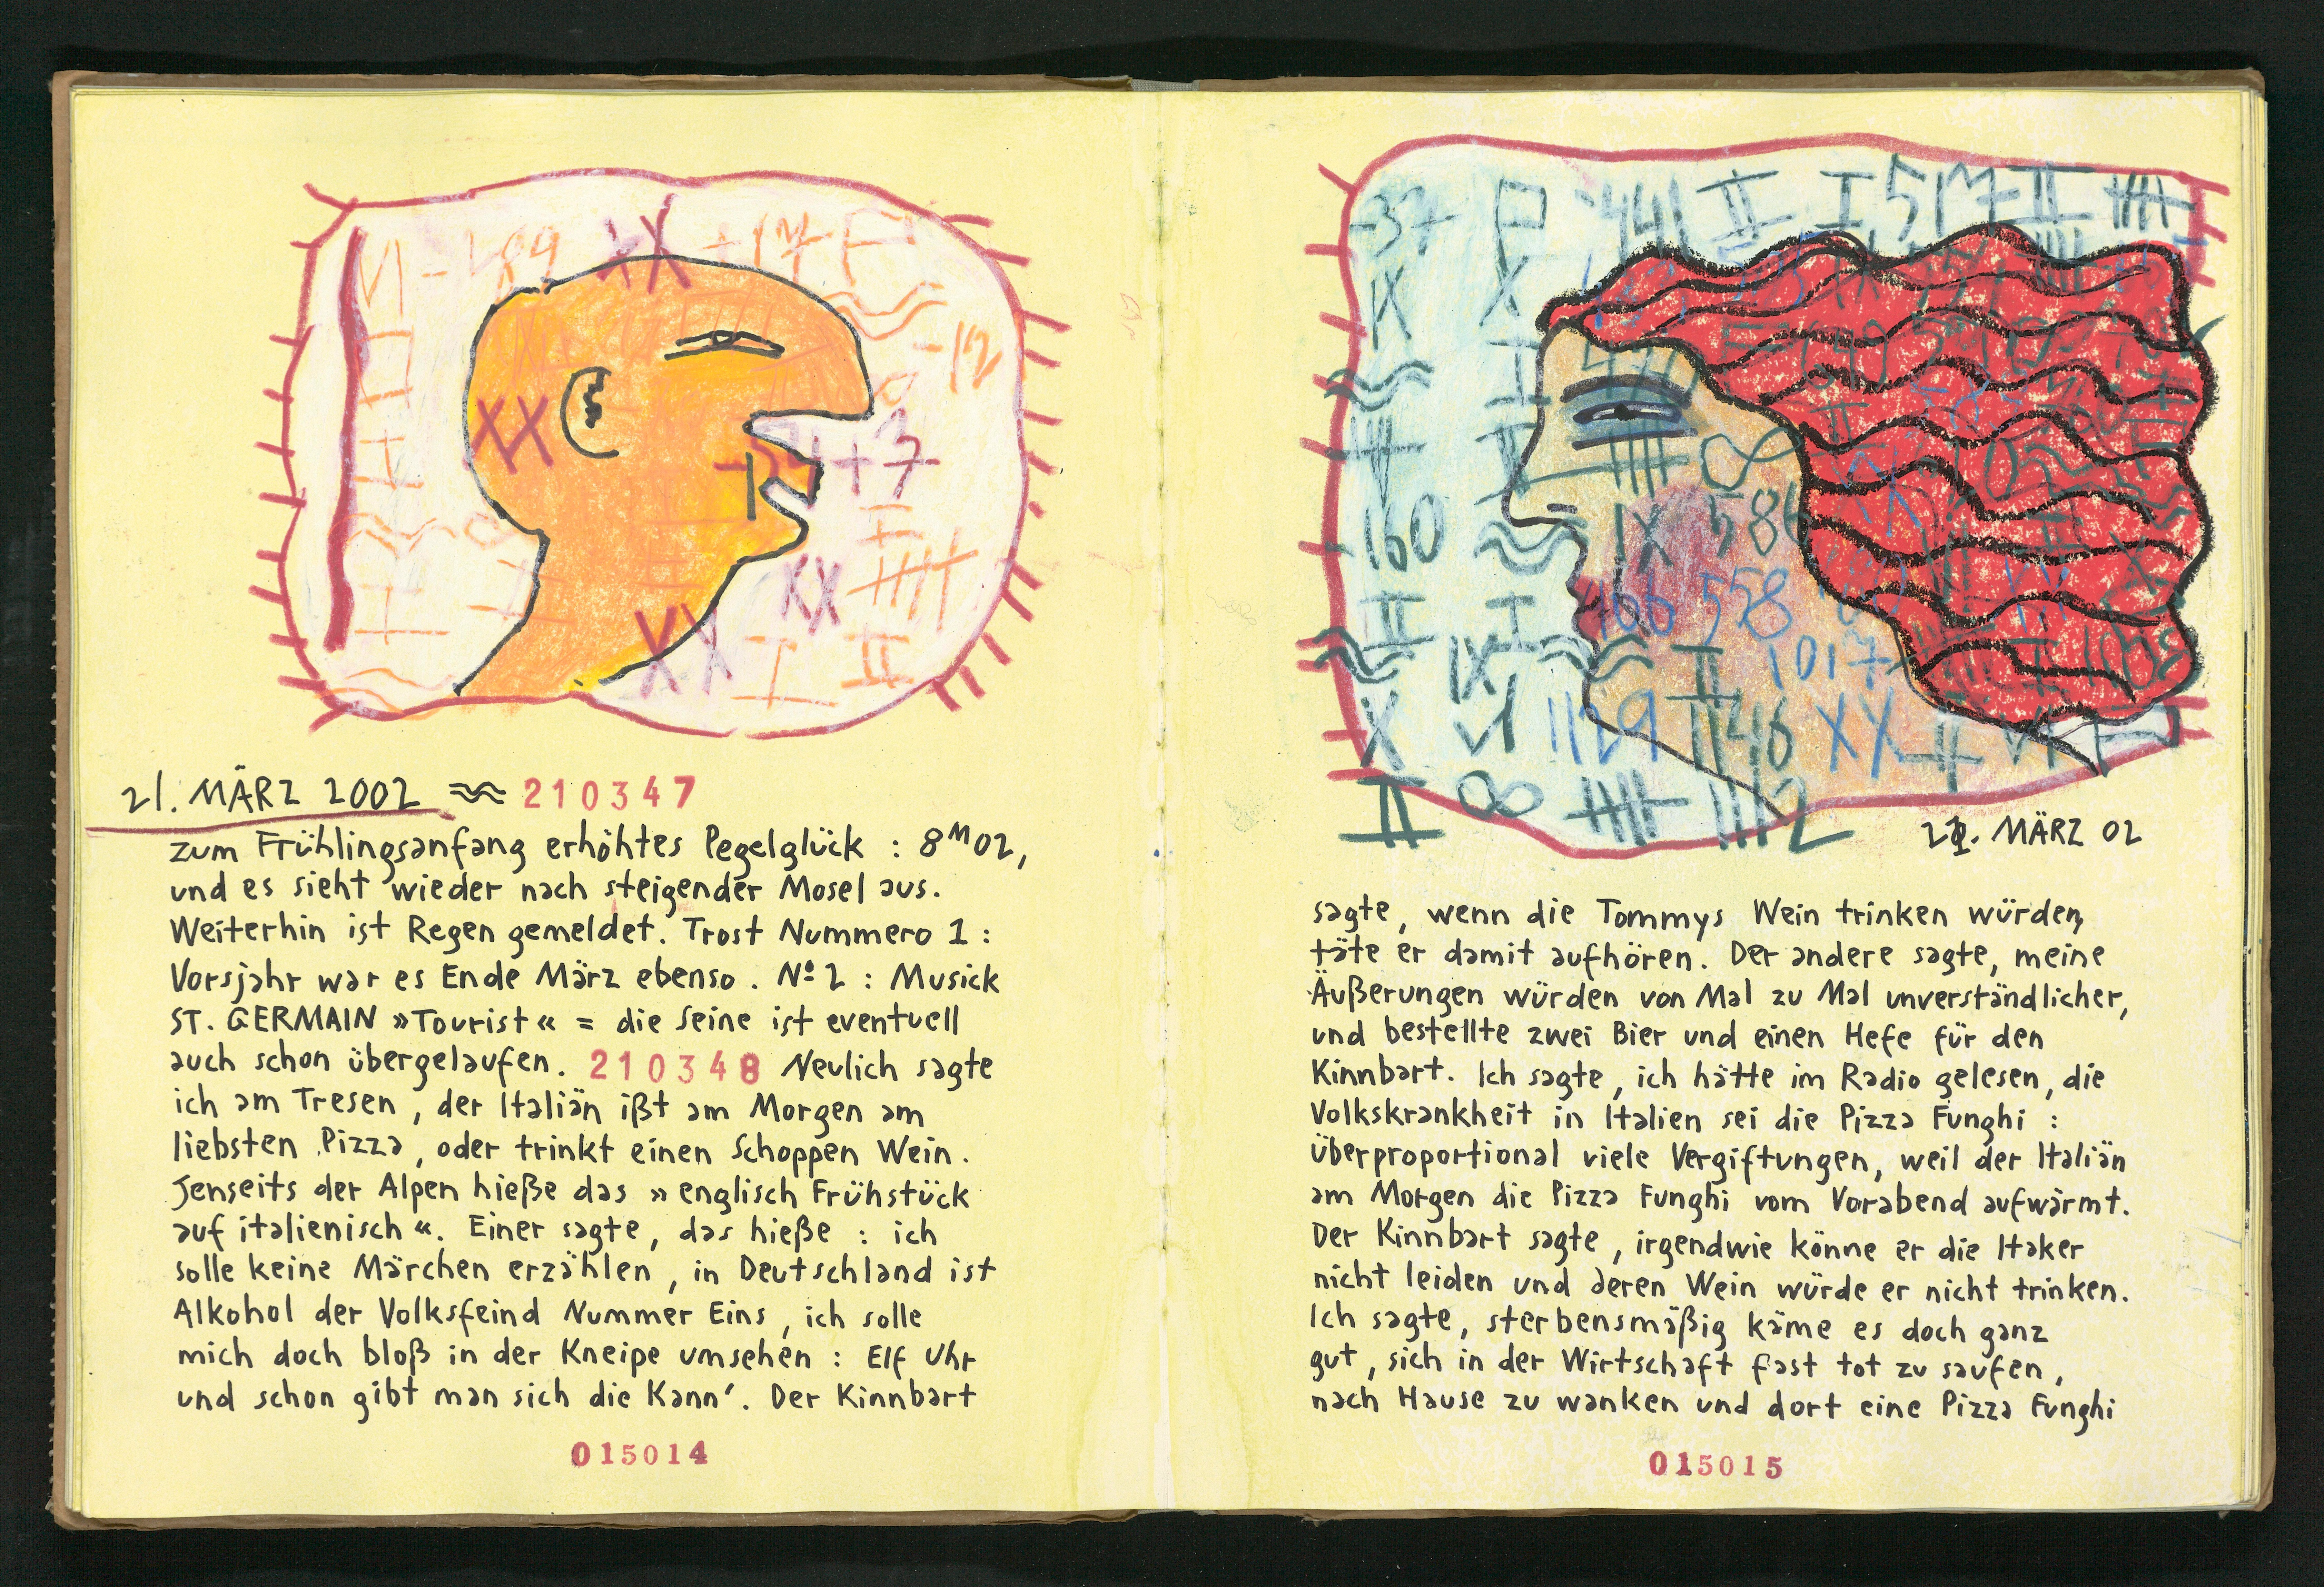 21. MÄRZ 2002 ≈ 210347
zum Frühlingsanfang erhöhtes Pegelglück : 8ᴹ02,
und es sieht wieder nach steigender Mosel aus.
Weiterhin ist Regen gemeldet. Trost Nummero 1 :
Vorsjahr war es Ende März ebenso. Nº 2 : Musick
ST. GERMAIN »Tourist« = die Seine ist eventuell
auch schon übergelaufen. 210348 Neulich sagte
ich am Tresen, der Italiän ißt am Morgen am
liebsten Pizza, oder trinkt einen Schoppen Wein.
Jenseits der Alpen hieße das »englisch Frühstück
auf italienisch«. Einer sagte, das hieße : ich
solle keine Märchen erzählen, in Deutschland ist
Alkohol der Volksfeind Nummer Eins, ich solle
mich doch bloß in der Kneipe umsehen : Elf Uhr
und schon gibt man sich die Kann'. Der Kinnbart
015014
-37 P 441 II I 517 II
IX X
I
160 ≈ IX 586
II I 466 558
≈ IX ≈ II 1017
X VI 1129 1146 XX II VI
II ∞ 1112
21. MÄRZ 02
sagte, wenn die Tommys Wein trinken würden,
täte er damit aufhören. Der andere sagte, meine
Äußerungen würden von Mal zu Mal unverständlicher,
und bestellte zwei Bier und einen Hefe für den
Kinnbart. Ich sagte, ich hätte im Radio gelesen, die
Volkskrankheit in Italien sei die Pizza Funghi :
Überproportional viele Vergiftungen, weil der Italiän
am Morgen die Pizza Funghi vom Vorabend aufwärmt.
Der Kinnbart sagte, irgendwie könne er die Itaker
nicht leiden und deren Wein würde er nicht trinken.
Ich sagte, sterbensmäßig käme es doch ganz
gut, sich in der Wirtschaft fast tot zu saufen,
nach Hause zu wanken und dort eine Pizza Funghi
015015